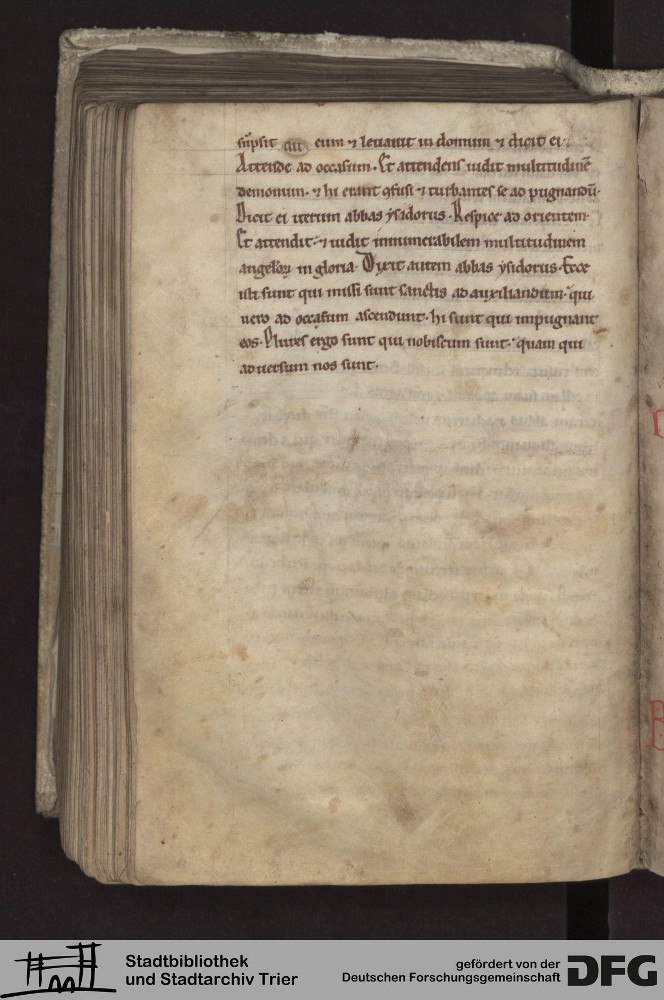 sūpsit eum ⁊ leuauit in domum ⁊ dicit ei.
Attende ad occasum. Et attendens uidit multitudinē
demonum. ⁊ hi erant ꝯfusi ⁊ turbantes se ad pugnandū.
Dicit ei iterum abbas ysidorus. Respice ad orientem.
Et attendit. ⁊ uidit innumerabilem multitudinem
angeloꝝ in gloria. Dixit autem abbas ysidorus. Ecce
isti sunt qui missi sunt sanctis ad auxiliandum. qui
uero ad occasum ascendunt. hi sunt qui impugnant
eos. Plures ergo sunt qui nobiscum sunt. quam qui
aduersum nos sunt.
Stadtbibliothek
und Stadtarchiv Trier
gefördert von der
Deutschen Forschungsgemeinschaft
DFG